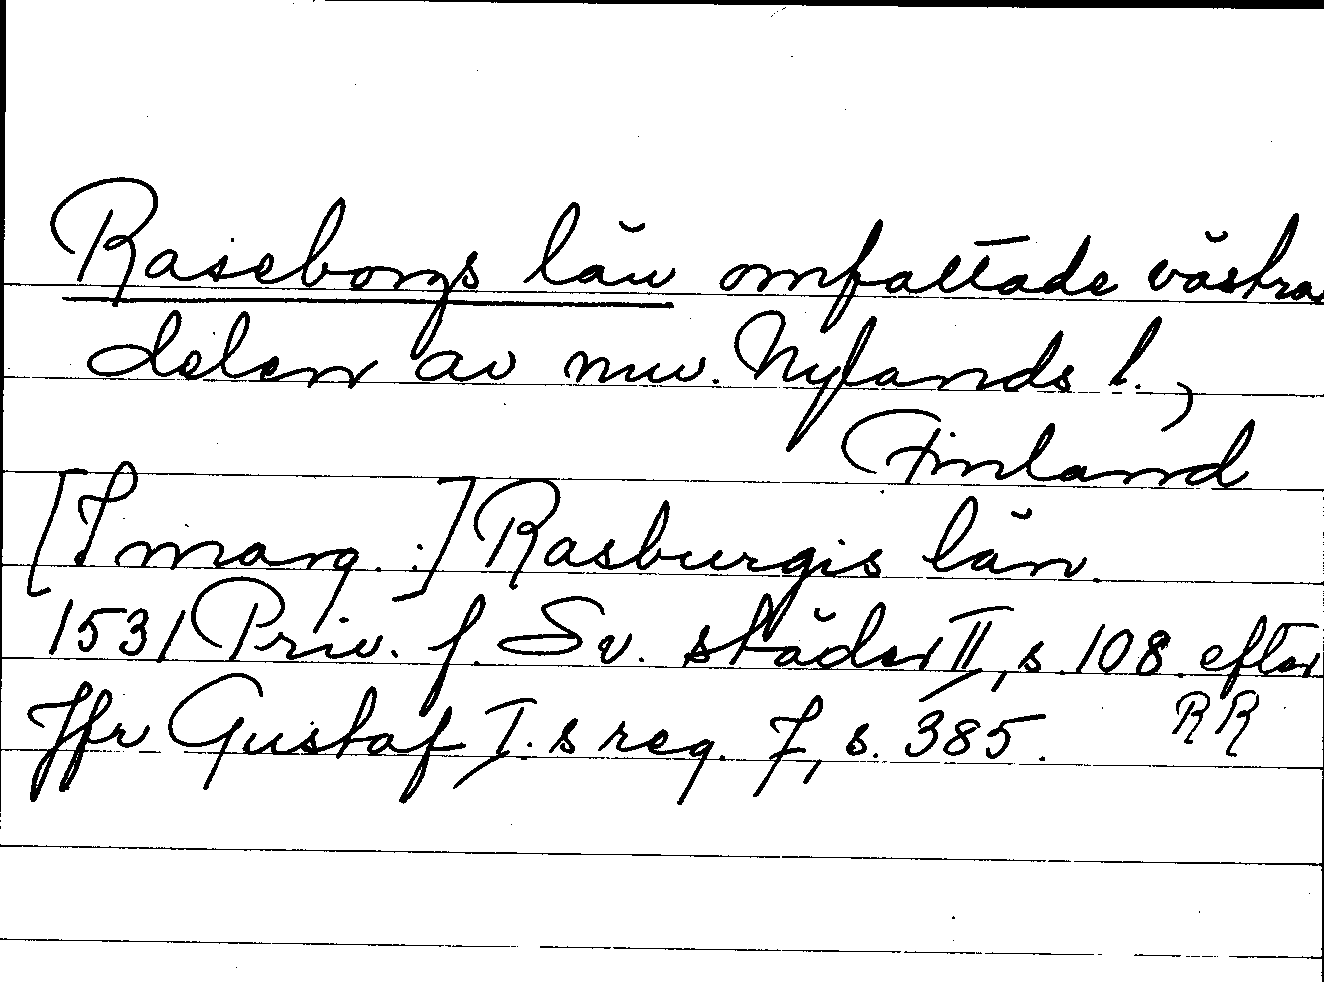 Raseborgs län omfattade västra
delen av nuv. Nylands l.,
Finland
[I marg.:] Rasburgis län.
1531 Priv. f. Sv. städer II, s. 108 efter
RR
Jfr Gustaf I.s reg. 7, s. 385.